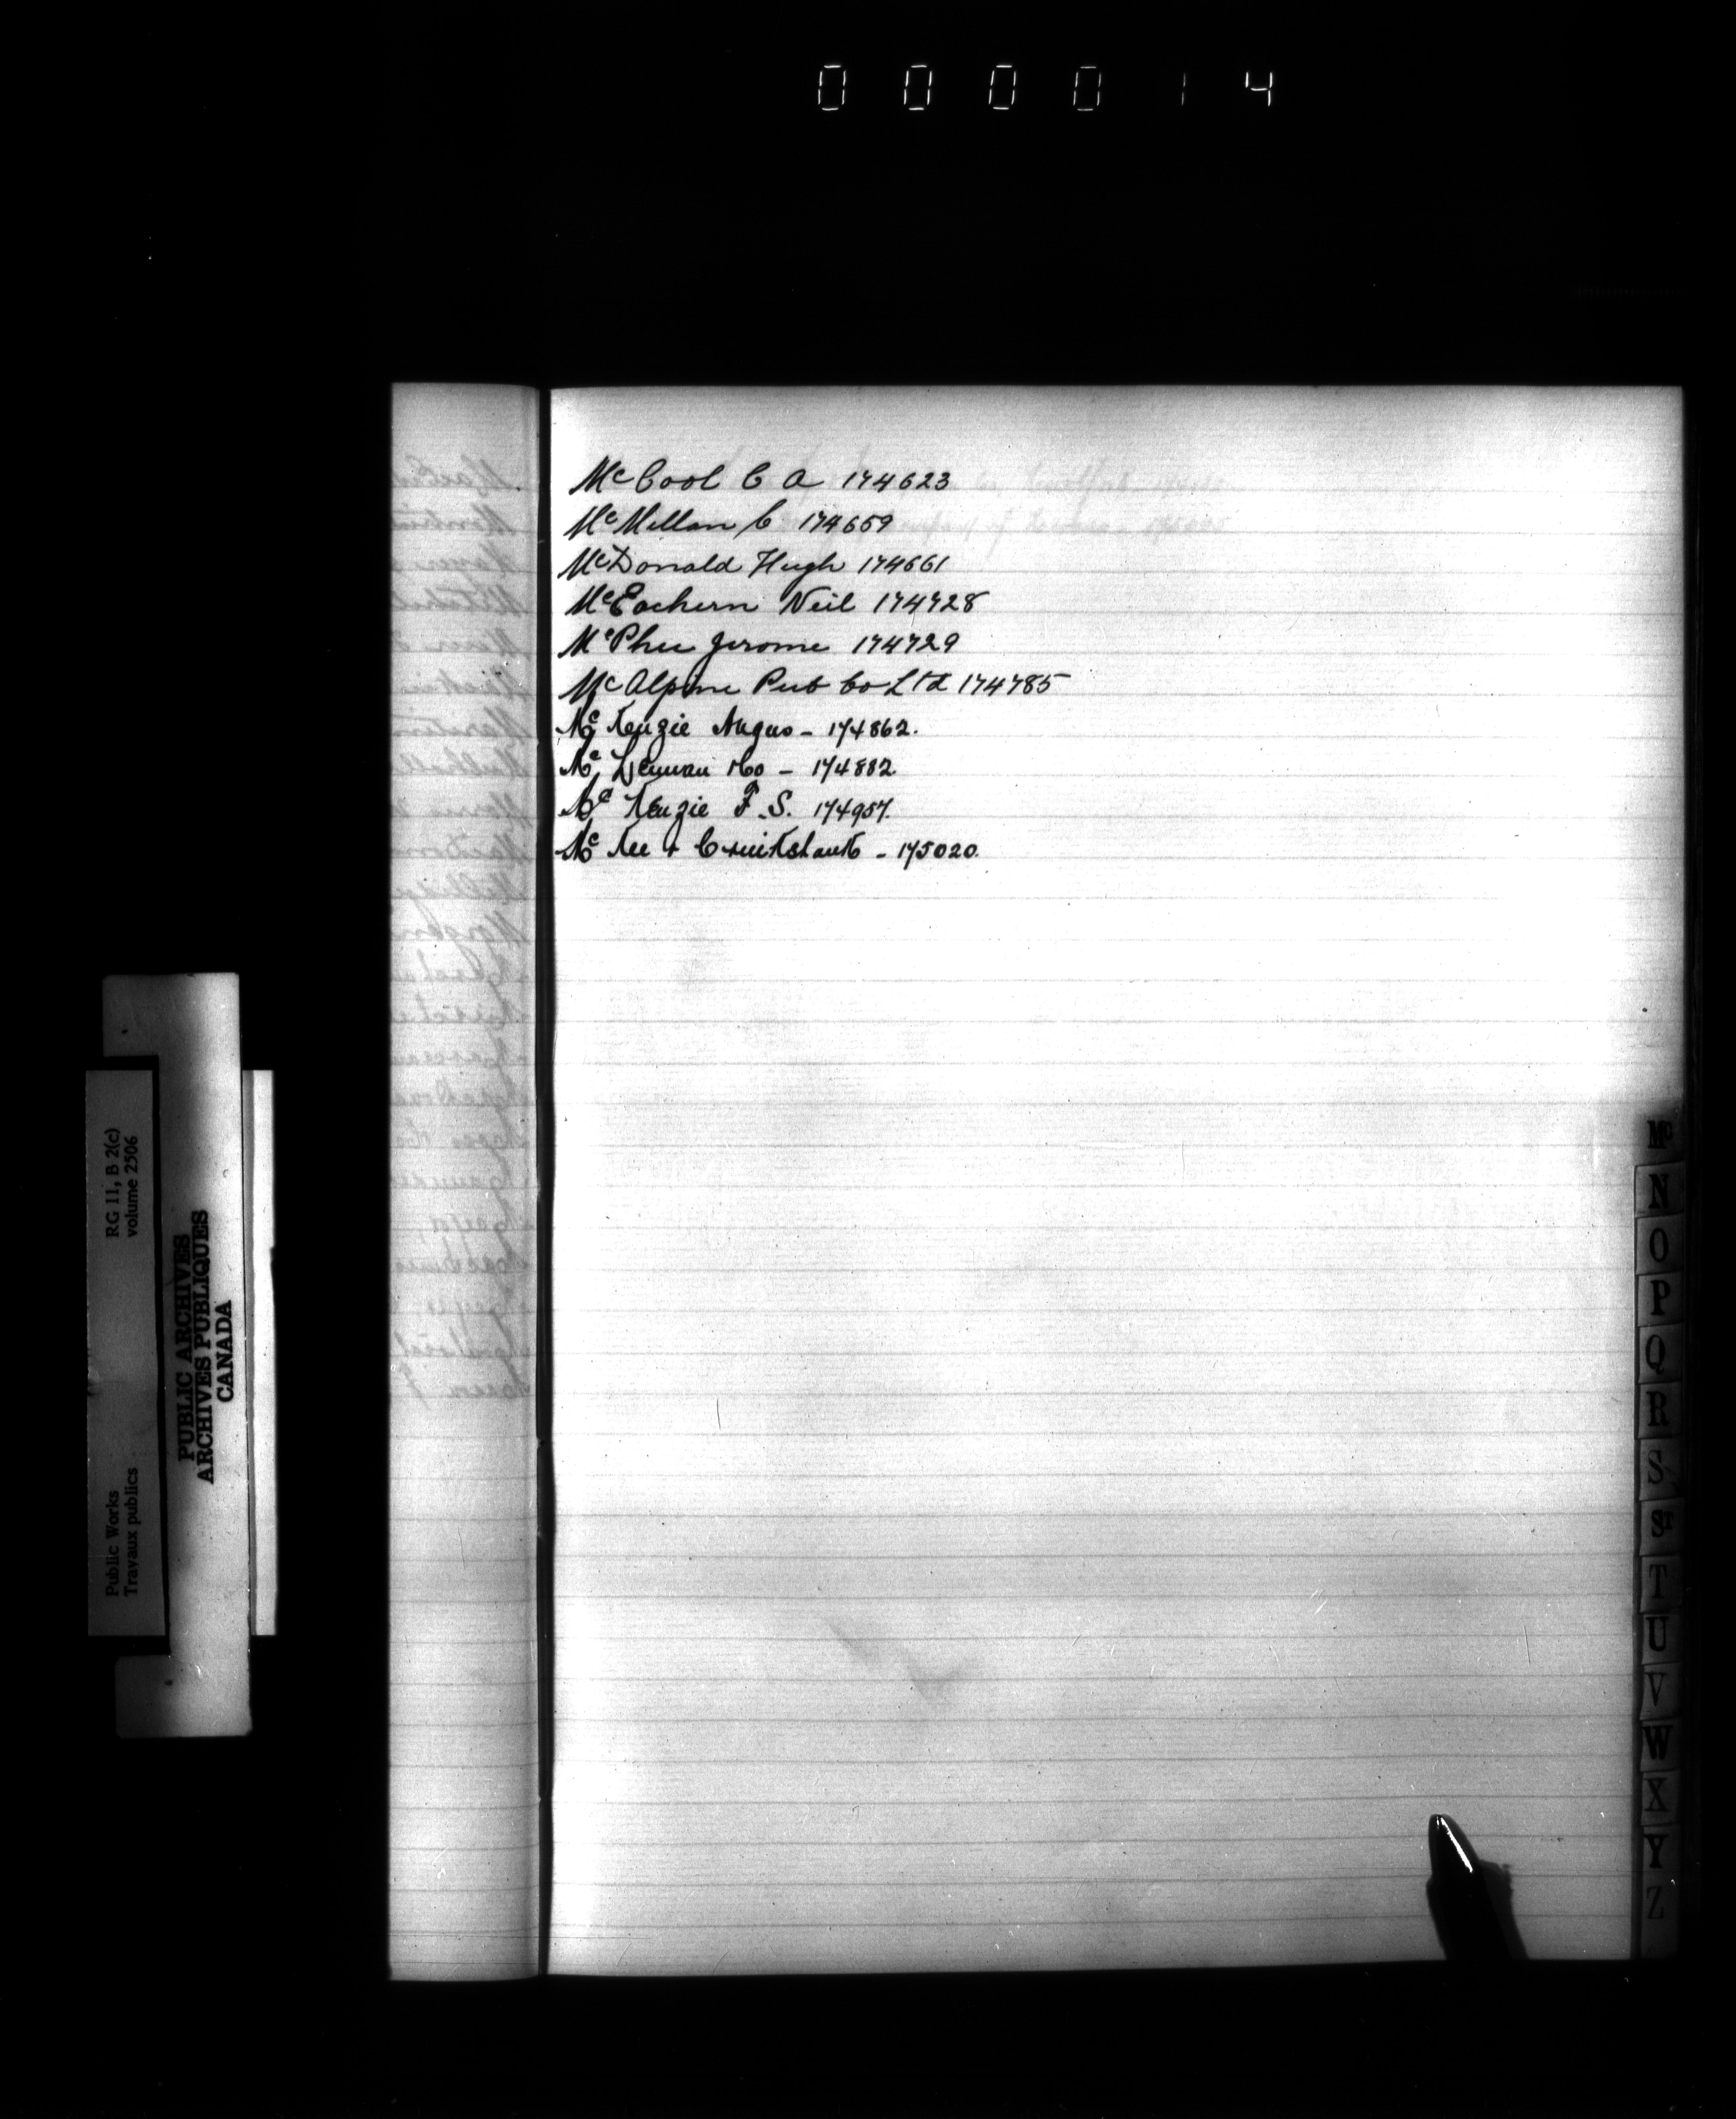 000014
McCool C A 174623
McMillan C 174659
McDonald Hugh 174661
McEachern Neil 174728
McPhee Jerome 174729
McAlpine Pub Co Ltd 174785
McKenzie Angus - 174862.
McLennan - 174882.
McKenzie F. S. 174957.
McKee + Cruikshank - 175020.
Mc
N
O
P
Q
R
S
ST
T
U
V
W
X
Y
Z
RG 11, B 2(c)
volume 2506
Public Works
Travaux publics
PUBLIC ARCHIVES
ARCHIVES PUBLIQUES
CANADA